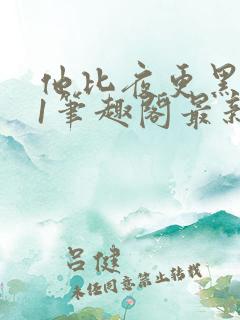 他比夜更黑
1笔趣阁最新
吕健
未经同意禁止转载